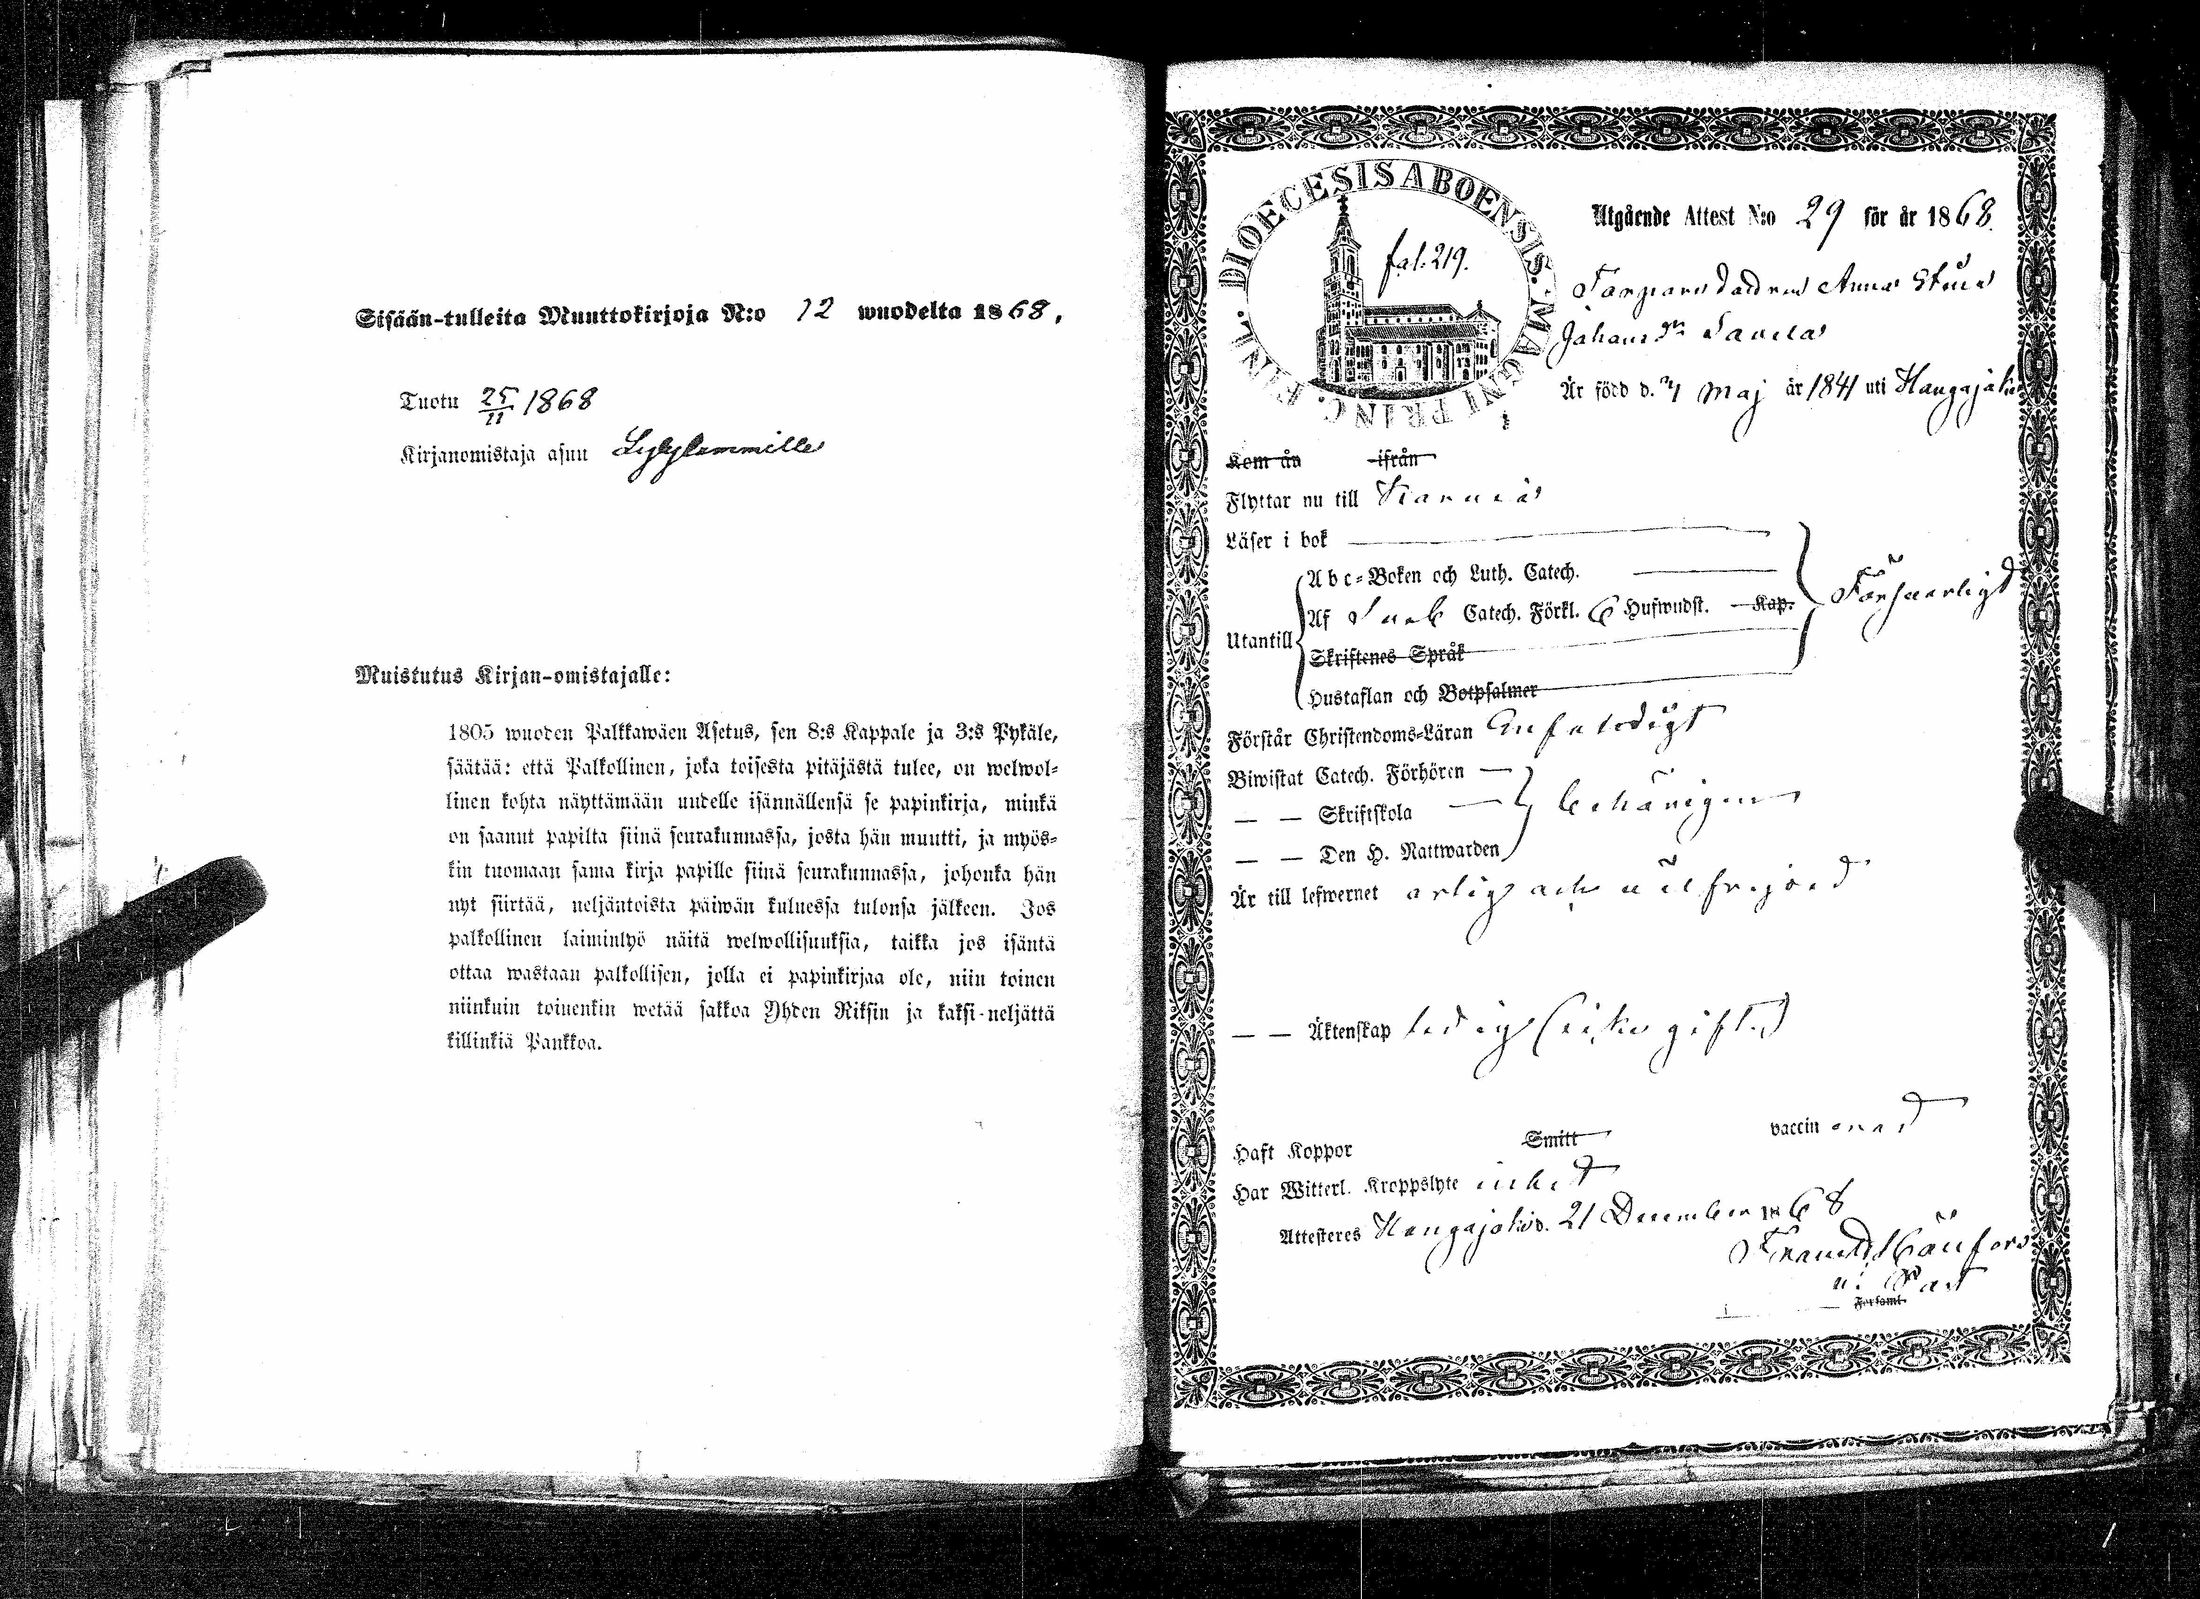 Sisään-tulleita Muuttokirjoja N:o 12 wuodelta 1868.
Tuotu 25/11 1868
Kirjanomistaja asuu Lylylammille
Muistutus Kirjan-omistajalle:
1805 wuoden Palkkawäen Asetus, sen 8:s Kappale ja 3:s Pykäle,
säätää: että Palkollinen, joka toisesta pitäjästä tulee, on welwol-
linen kohta näyttämään uudelle isännällensä se papinkirja, minkä
on saanut papilta siinä seurakunnassa, josta hän muutti, ja myös-
kin tuomaan sama kirja papille siinä seurakunnassa, johonka hän
nyt siirtää, neljäntoista päiwän kuluessa tulonsa jälkeen. Jos
palkollinen laiminlyö näitä welwollisuuksia, taikka jos isäntä
ottaa wastaan palkollisen, jolla ei papinkirjaa ole, niin toinen
niinkuin toinenkin wetää sakkoa Yhden Riksin ja kaksi-neljättä
killinkiä Pankkoa.
DIOECESIS ABOENSIS. MAGNI PRINC. FINL.
fol. 219.
Utgående Attest N:o 29 för år 1868.
Torpare Anna Stina
Johans dr
Är född d. 4 Maj år 1841 uti Kangasjoki
Kom år ifrån
Flyttar nu till
Läser i bok
Abc-Boken och Luth. Catech.
Utantill
Af Sveb Catech. Förkl. 6 Hufwudst. Kap.
Försvarligt
Skriftenes Språk
Hustaflan och Botpsalmer
Förstår Christendoms-Läran
Biwistat Catech. Förhören
— — Skriftskola behörigen
— — Den H. Nattwarden
Är till lefwernet ärlig och välfrejdad
— — Äktenskap ledig (icke gift)
Haft Koppor Smitt vaccinerad
Har Witterl. Kroppslyte intet
Attesteres d. 21 December 1868
v. Past
Församl.